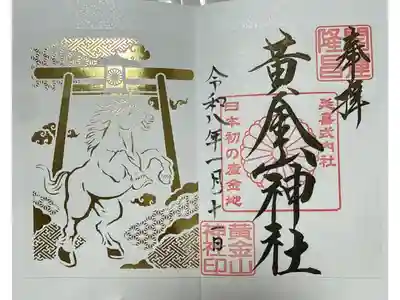 開運隆昌
奉拝
延喜式内社
黄金山神社
日本初の産金地
黄金山神社印
令和八年一月十一日